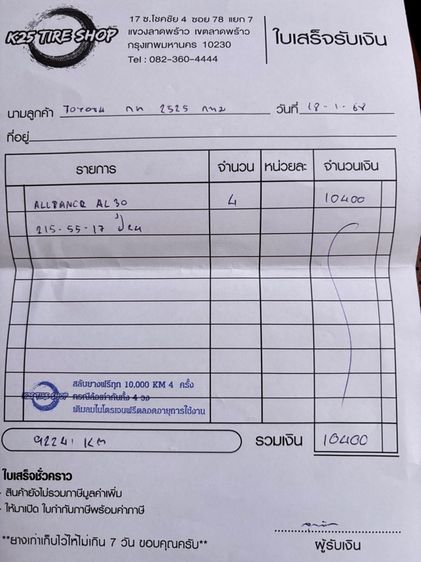 K25 TIRE SHOP
17 ซ.โชคชัย 4 ซอย 78 แยก 7
แขวงลาดพร้าว เขตลาดพร้าว
กรุงเทพมหานคร 10230
Tel : 082-360-4444
ใบเสร็จรับเงิน
นามลูกค้า TOYOTA กท 2525 กทม วันที่ 18-1-68
ที่อยู่
รายการ จำนวน หน่วยละ จำนวนเงิน
ALLIANCE AL30 4 10400
215-55-17
K25 TIRE SHOP
สลับยางฟรีทุก 10,000 KM 4 ครั้ง
กรณีล้อเท่ากันทั้ง 4 วง
เติมลมไนโตรเจนฟรีตลอดอายุการใช้งาน
92241 KM รวมเงิน 10400
ใบเสร็จชั่วคราว
- สินค้ายังไม่รวมภาษีมูลค่าเพิ่ม
- ให้มาเปิด ใบกำกับภาษีพร้อมค่าภาษี
**ยางเก่าเก็บไว้ให้ไม่เกิน 7 วัน ขอบคุณครับ**
ผู้รับเงิน